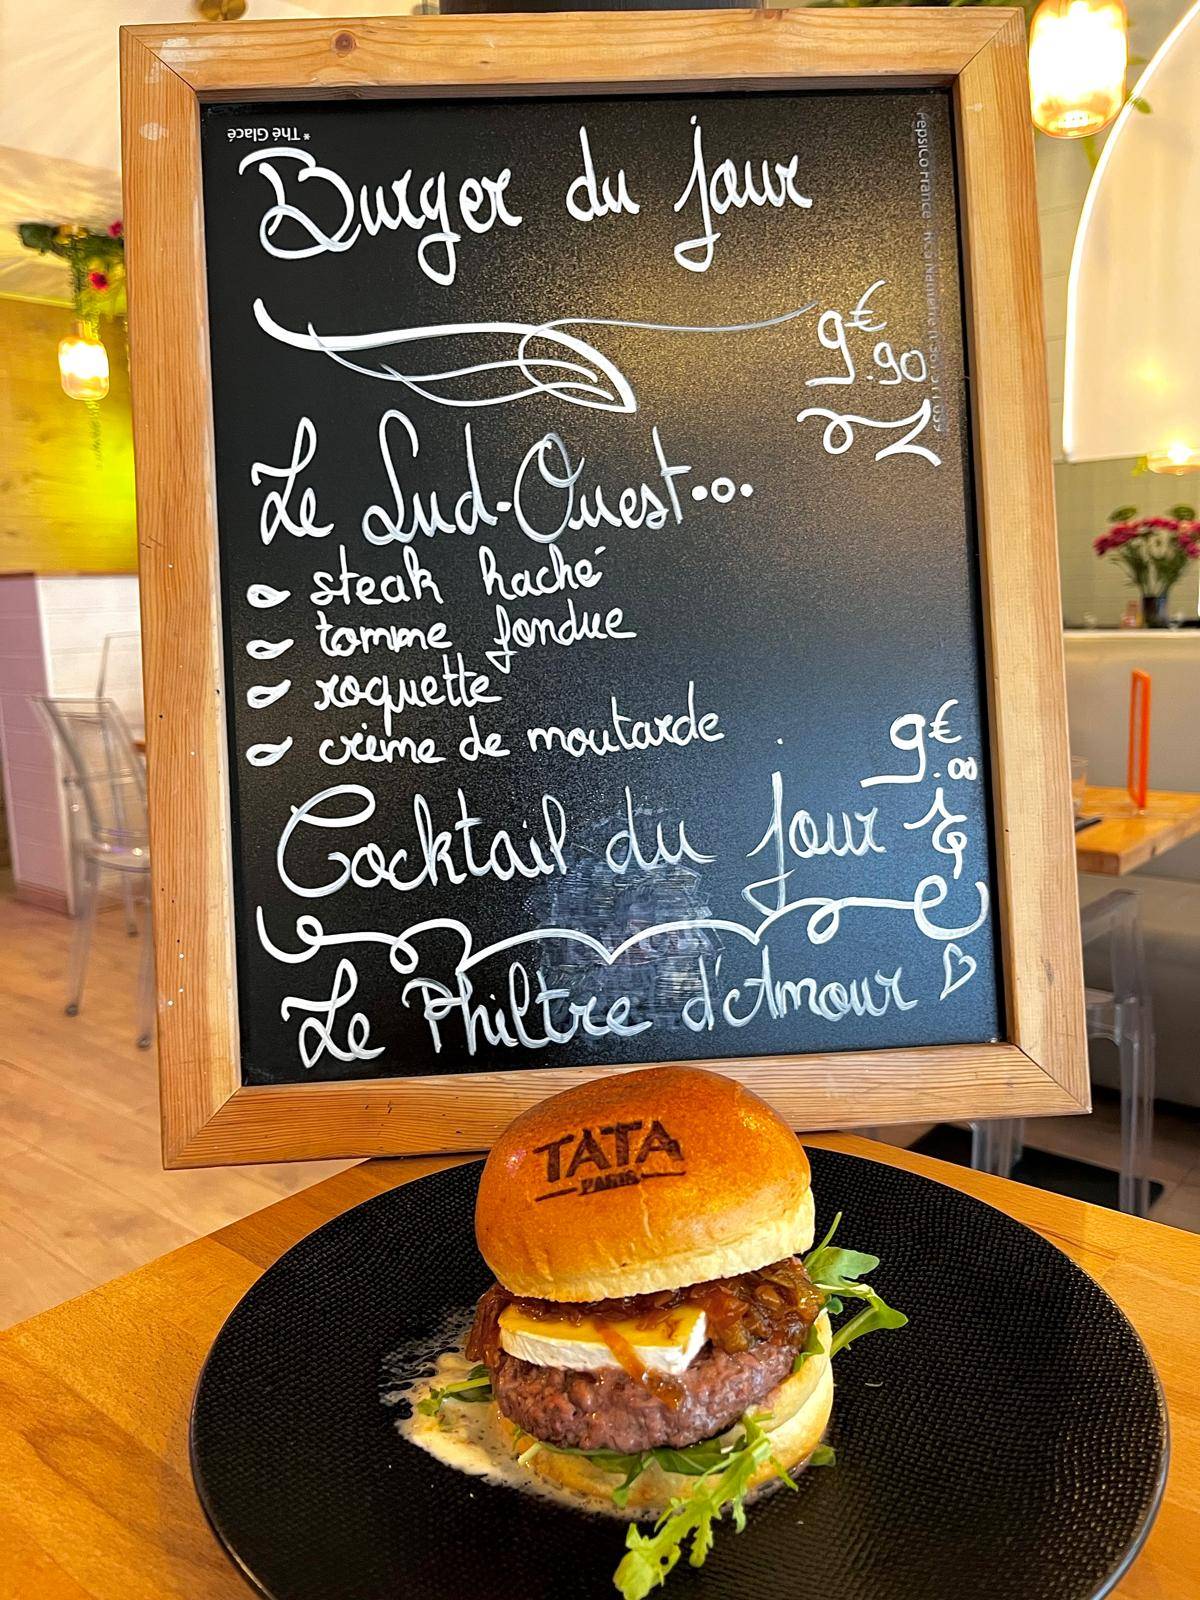 * Thé Glacé
Burger du jour
9€.90
Le Sud-Ouest...
steak haché
tomme fondue
roquette
crème de moutarde
9€.00
Cocktail du jour
Le Philtre d'Amour
TATA
PARIS